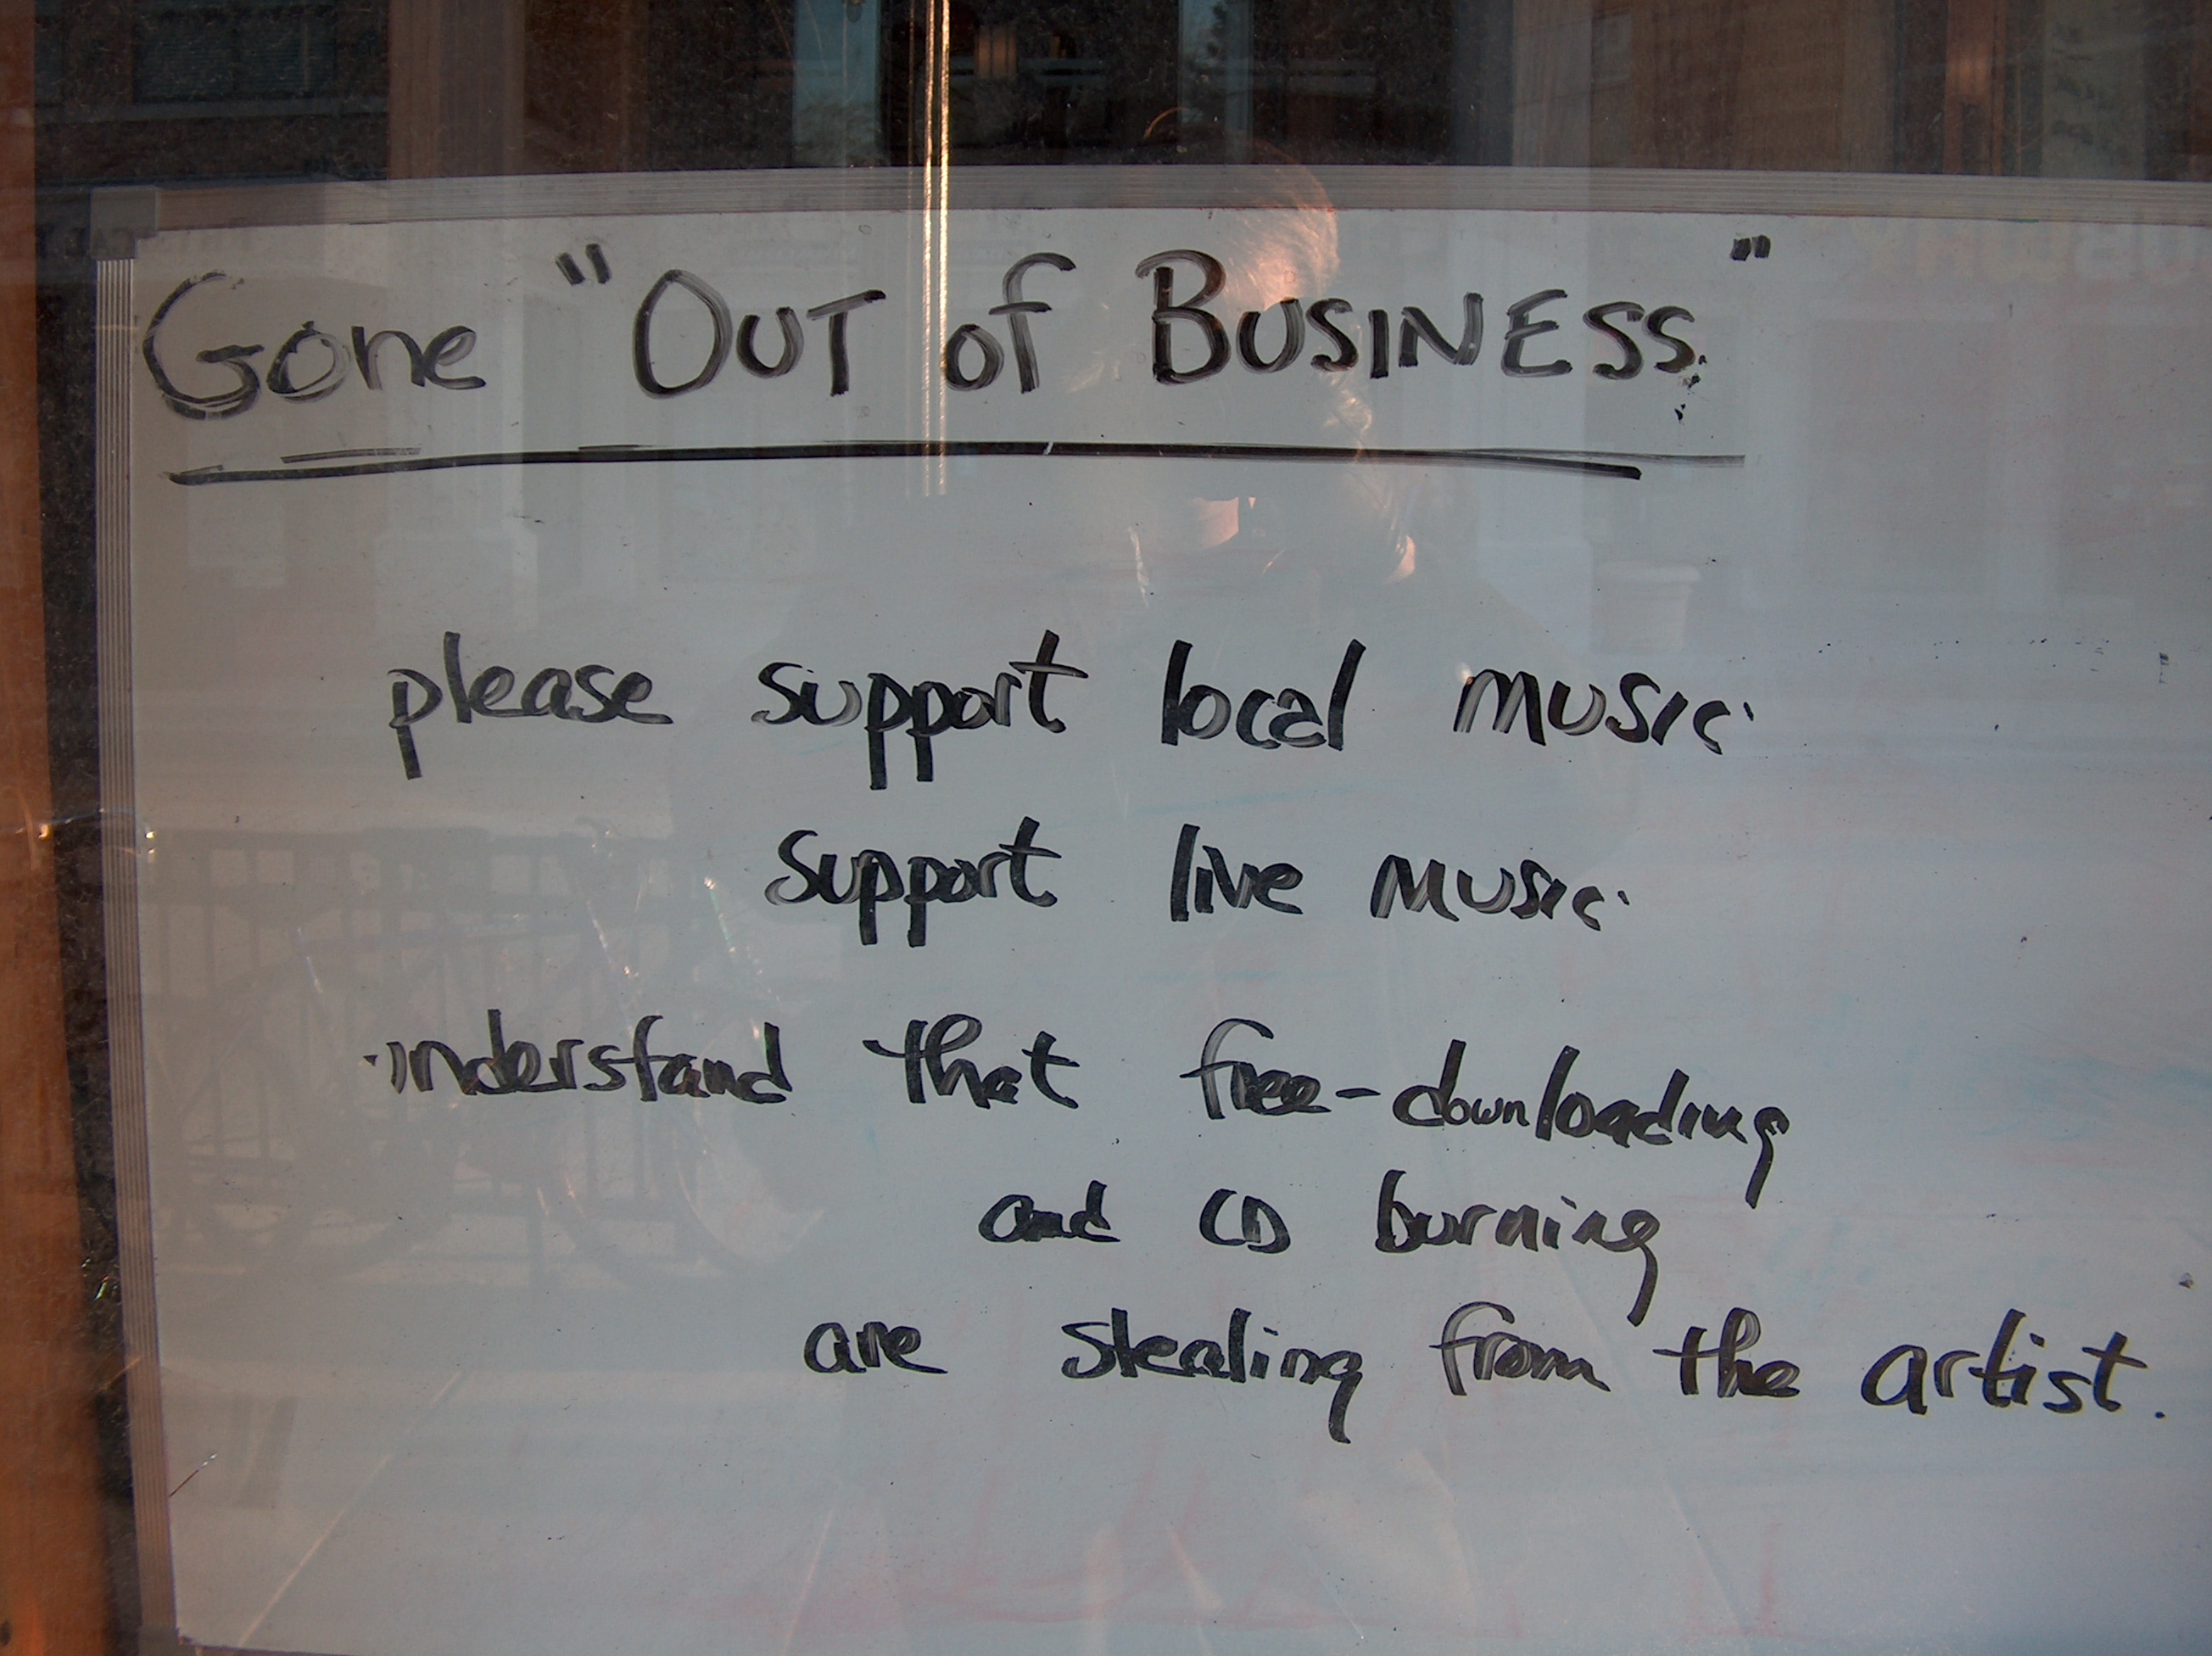 Gone "OUT of BUSINESS."
please support local music.
support live music.
understand that free-downloading
and CD burning
are stealing from the artist.